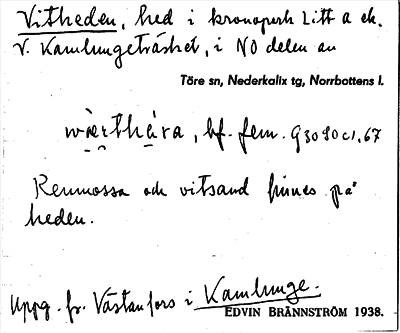 Vitheden, hed i kronopark Litt a ek.
V. Kamlungeträsket, i NO delen av
Töre sn, Nederkalix tg, Norrbottens l.
wærthæra, bf. fem. G3090c1,67
Renmossa och vitsand finnes på
heden.
Uppg. fr. Västanfors i Kamlunge.
EDVIN BRÄNNSTRÖM 1938.